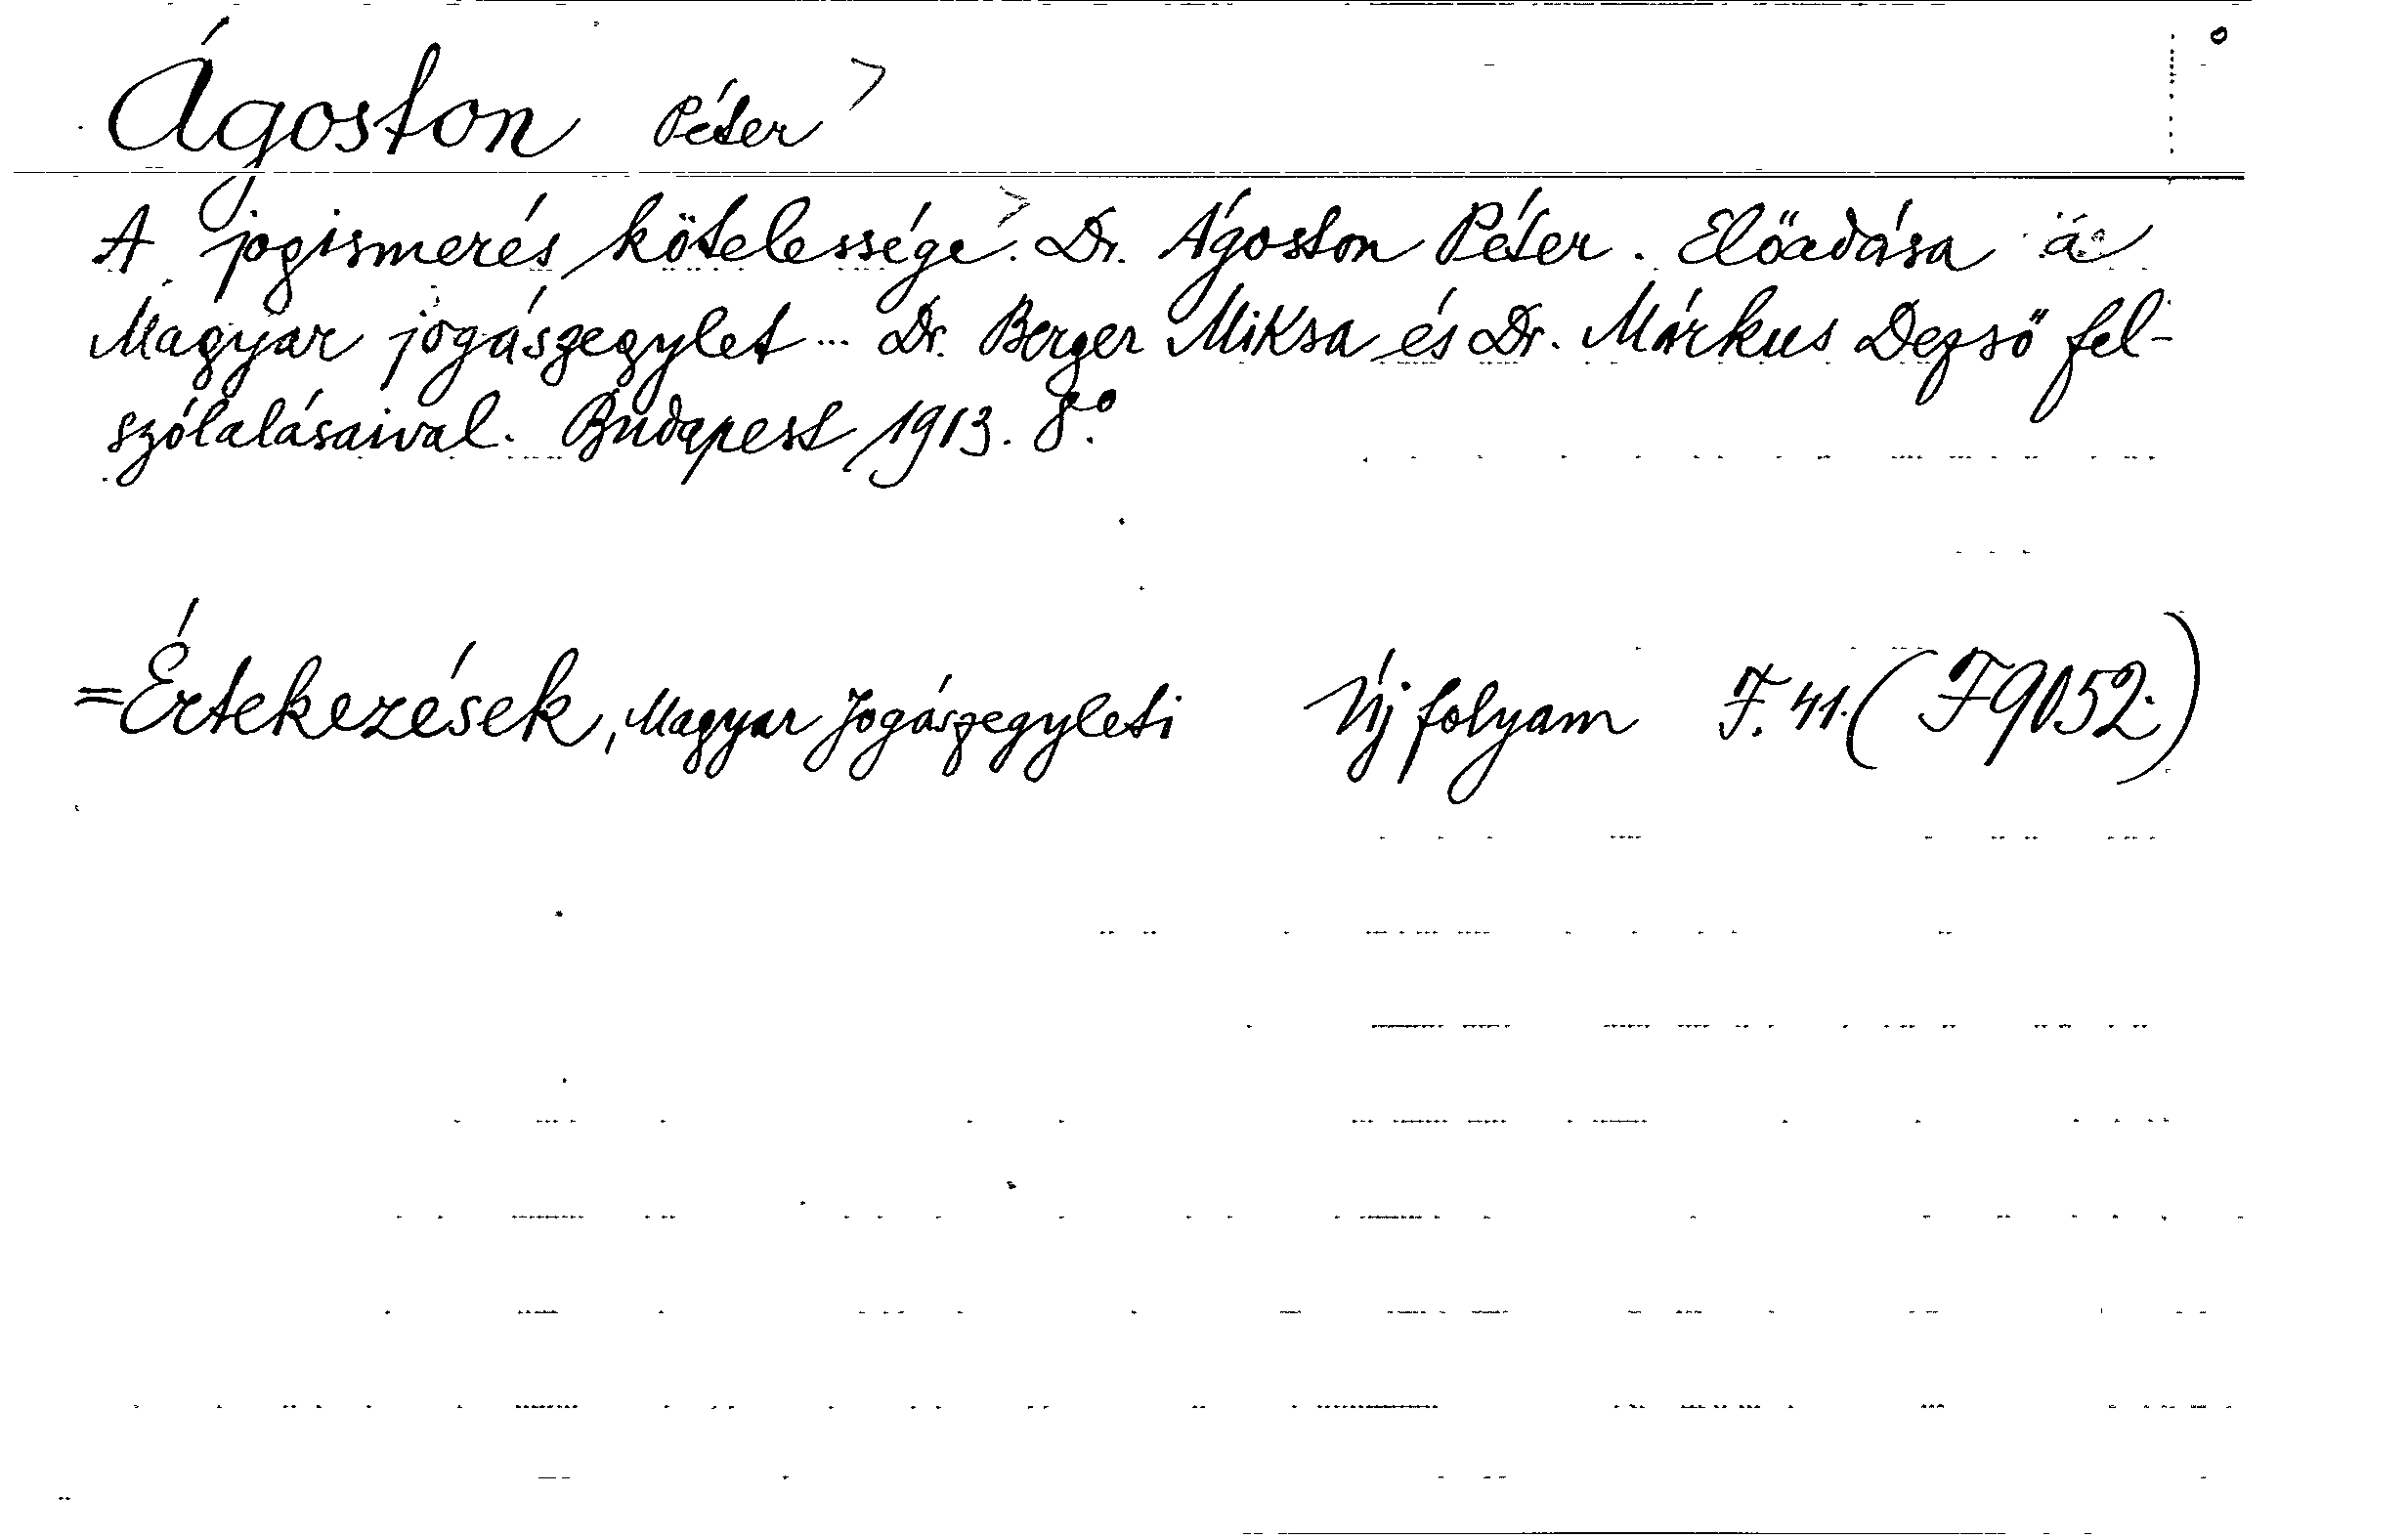 Ágoston Péter
A jogismerés kötelessége. Dr. Ágoston Péter. Előadása a
Magyar jogászegylet ... Dr. Berger Miksa és Dr. Márkus Dezső fel-
szólalásaival. Budapest, 1913. 8°.
=Értekezések, Magyar Jogászegyleti Új folyam F. 41. (F9052.)